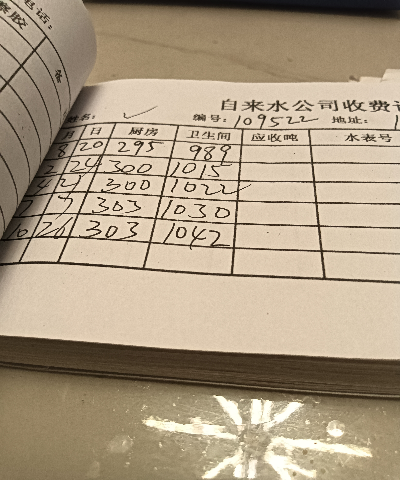 电话:
自来水公司收费
姓名: ✓ 编号: 109522 地址: 1
月 日 厨房 卫生间 应收吨 水表号
8 20 295 989
2 24 300 1015
4 21 300 1022
7 303 1030
10 26 303 1042